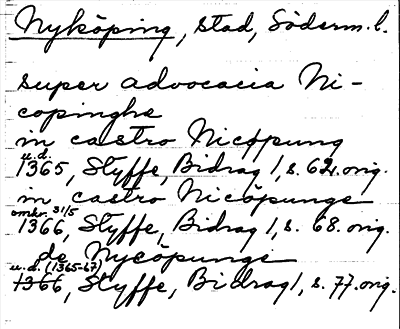 Nyköping, stad, Söderm.l.
super advocacia Ni-
copinghe
in castro Nicopung
u.d.
1365, Styffe, Bidrag 1, s. 62. orig.
in castro Nicopunge
omkr. 31/5
1366, Styffe, Bidrag 1, s. 68. orig.
de Nycopunge
u.d. (1365-67)
1366, Styffe, Bidrag 1, s. 77. orig.